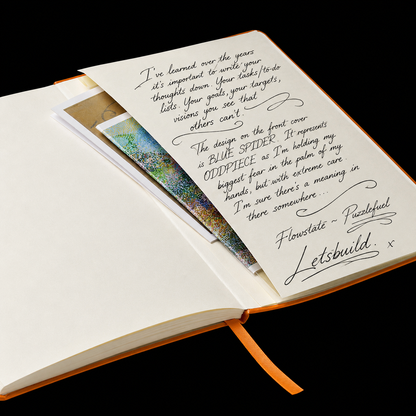 I've learned over the years
it's important to write your
thoughts down. Your tasks/to-do
lists. Your goals, your targets,
visions you see that
others can't.
The design on the front cover
is BLUE SPIDER. It represents
ODDPIECE as I'm holding my
biggest fear in the palm of my
hands, but with extreme care.
I'm sure there's a meaning in
there somewhere...
Flowstate ~ Puzzlefuel
Letsbuild. x